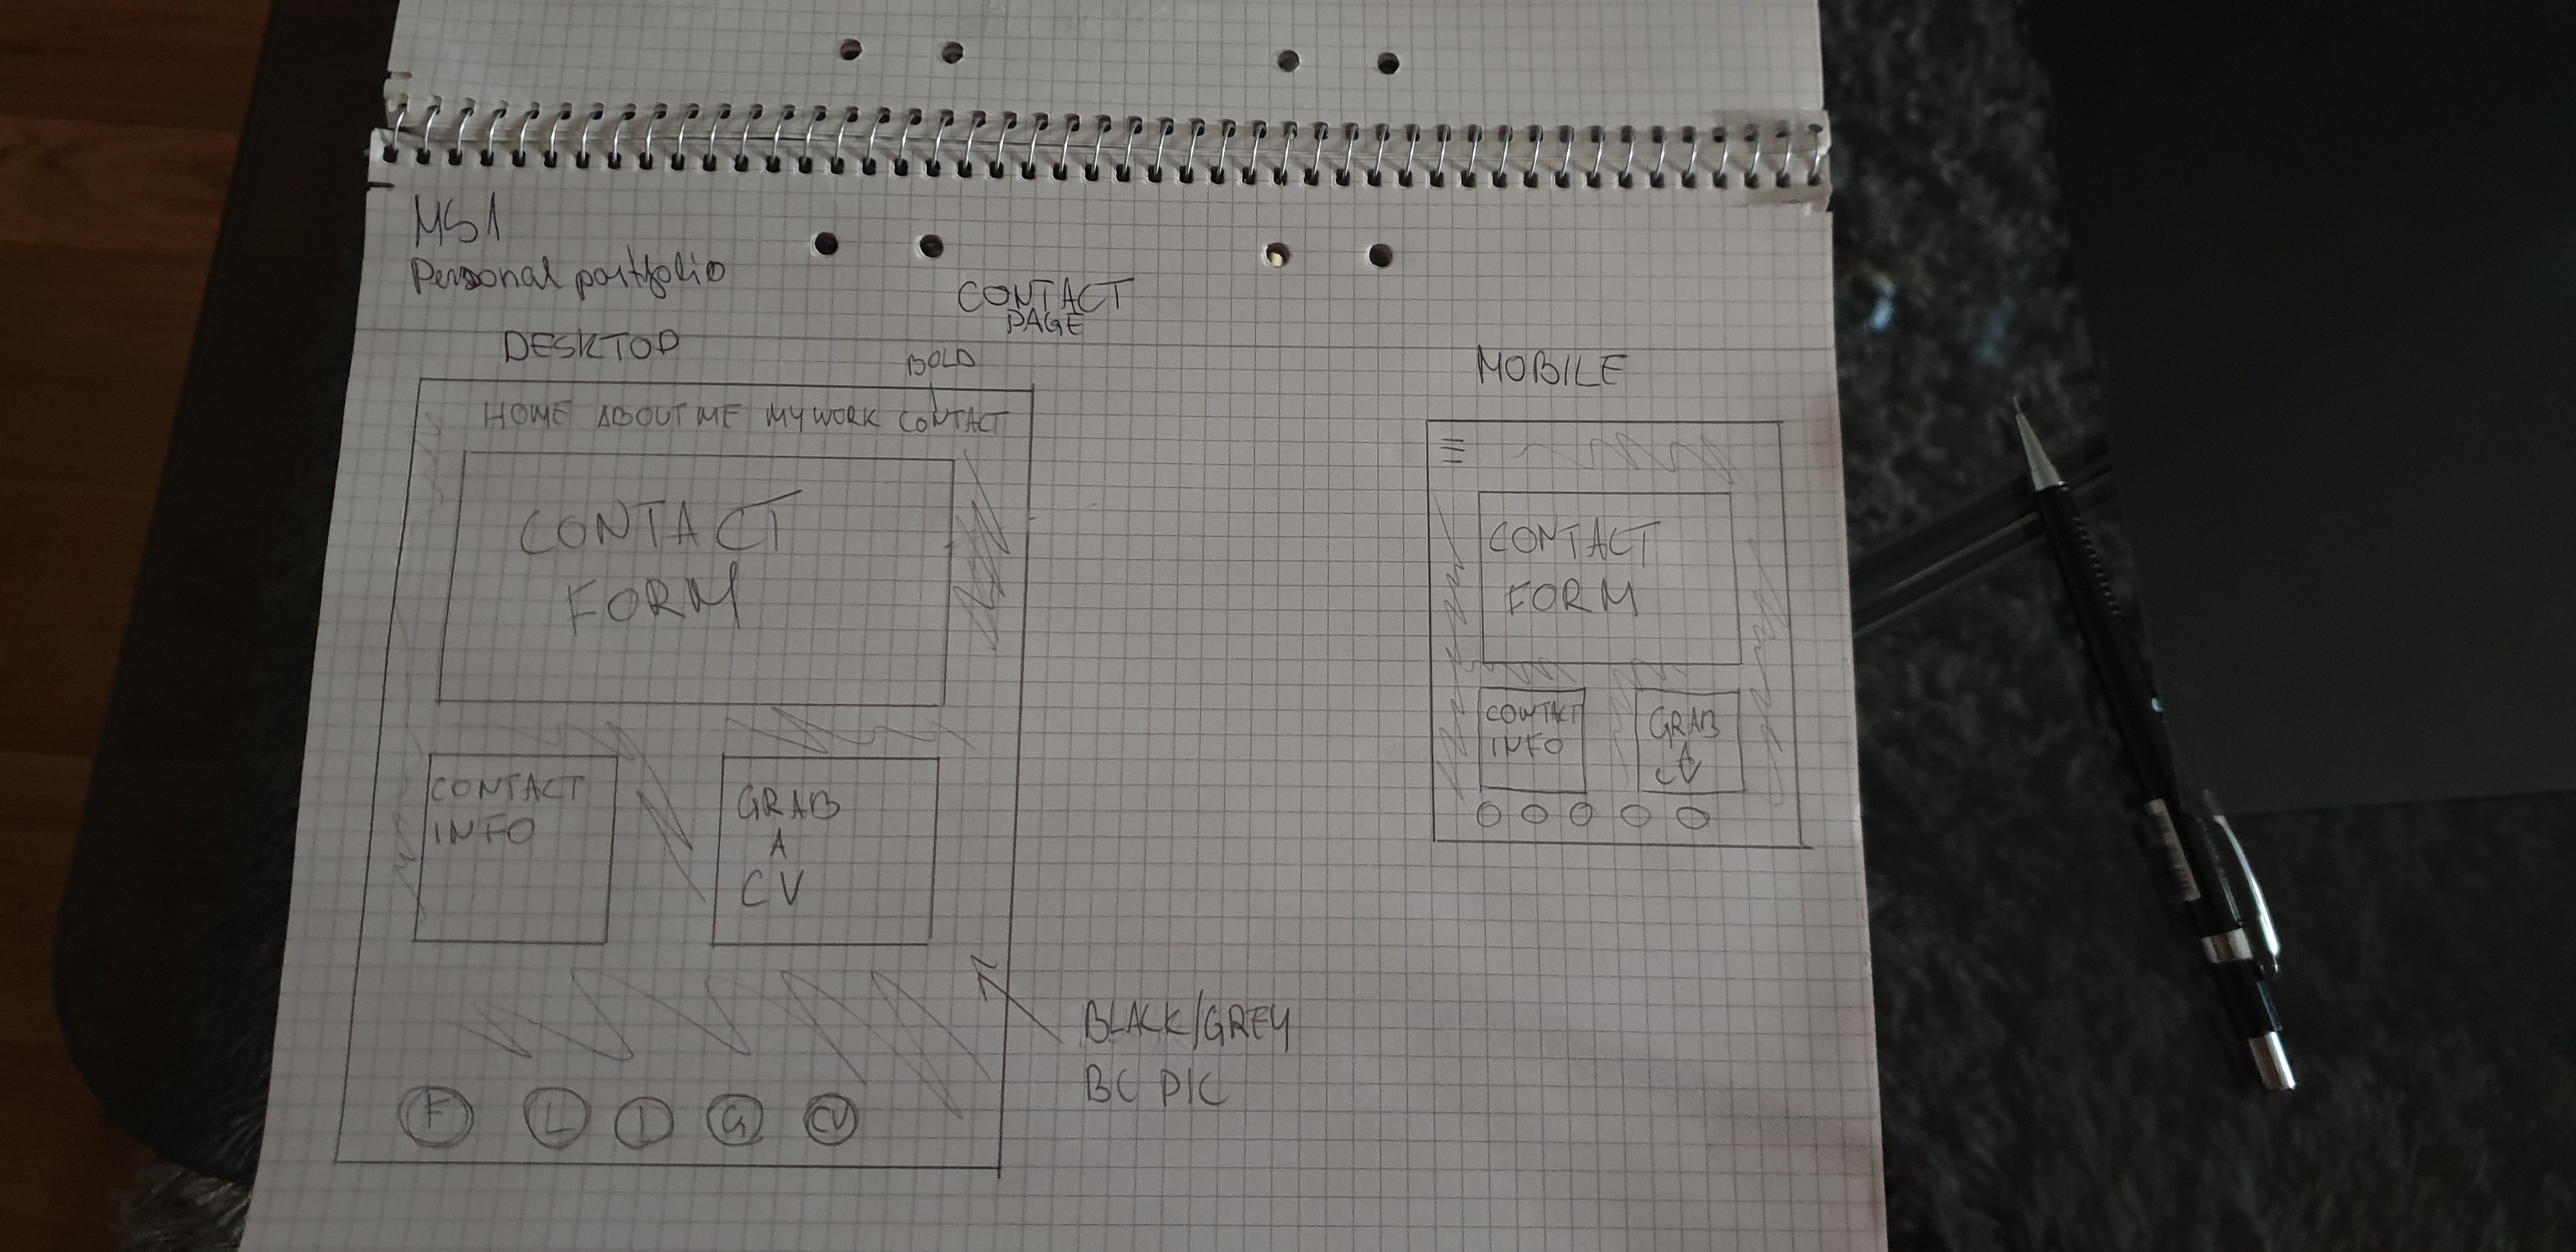 MS1
Personal portfolio
CONTACT
PAGE
DESKTOP
BOLD
HOME ABOUT ME MY WORK CONTACT
CONTACT
FORM
CONTACT
INFO
GRAB
A
CV
F L I G CV
BLACK/GREY
BC PIC
MOBILE
CONTACT
FORM
CONTACT
INFO
GRAB
A
CV